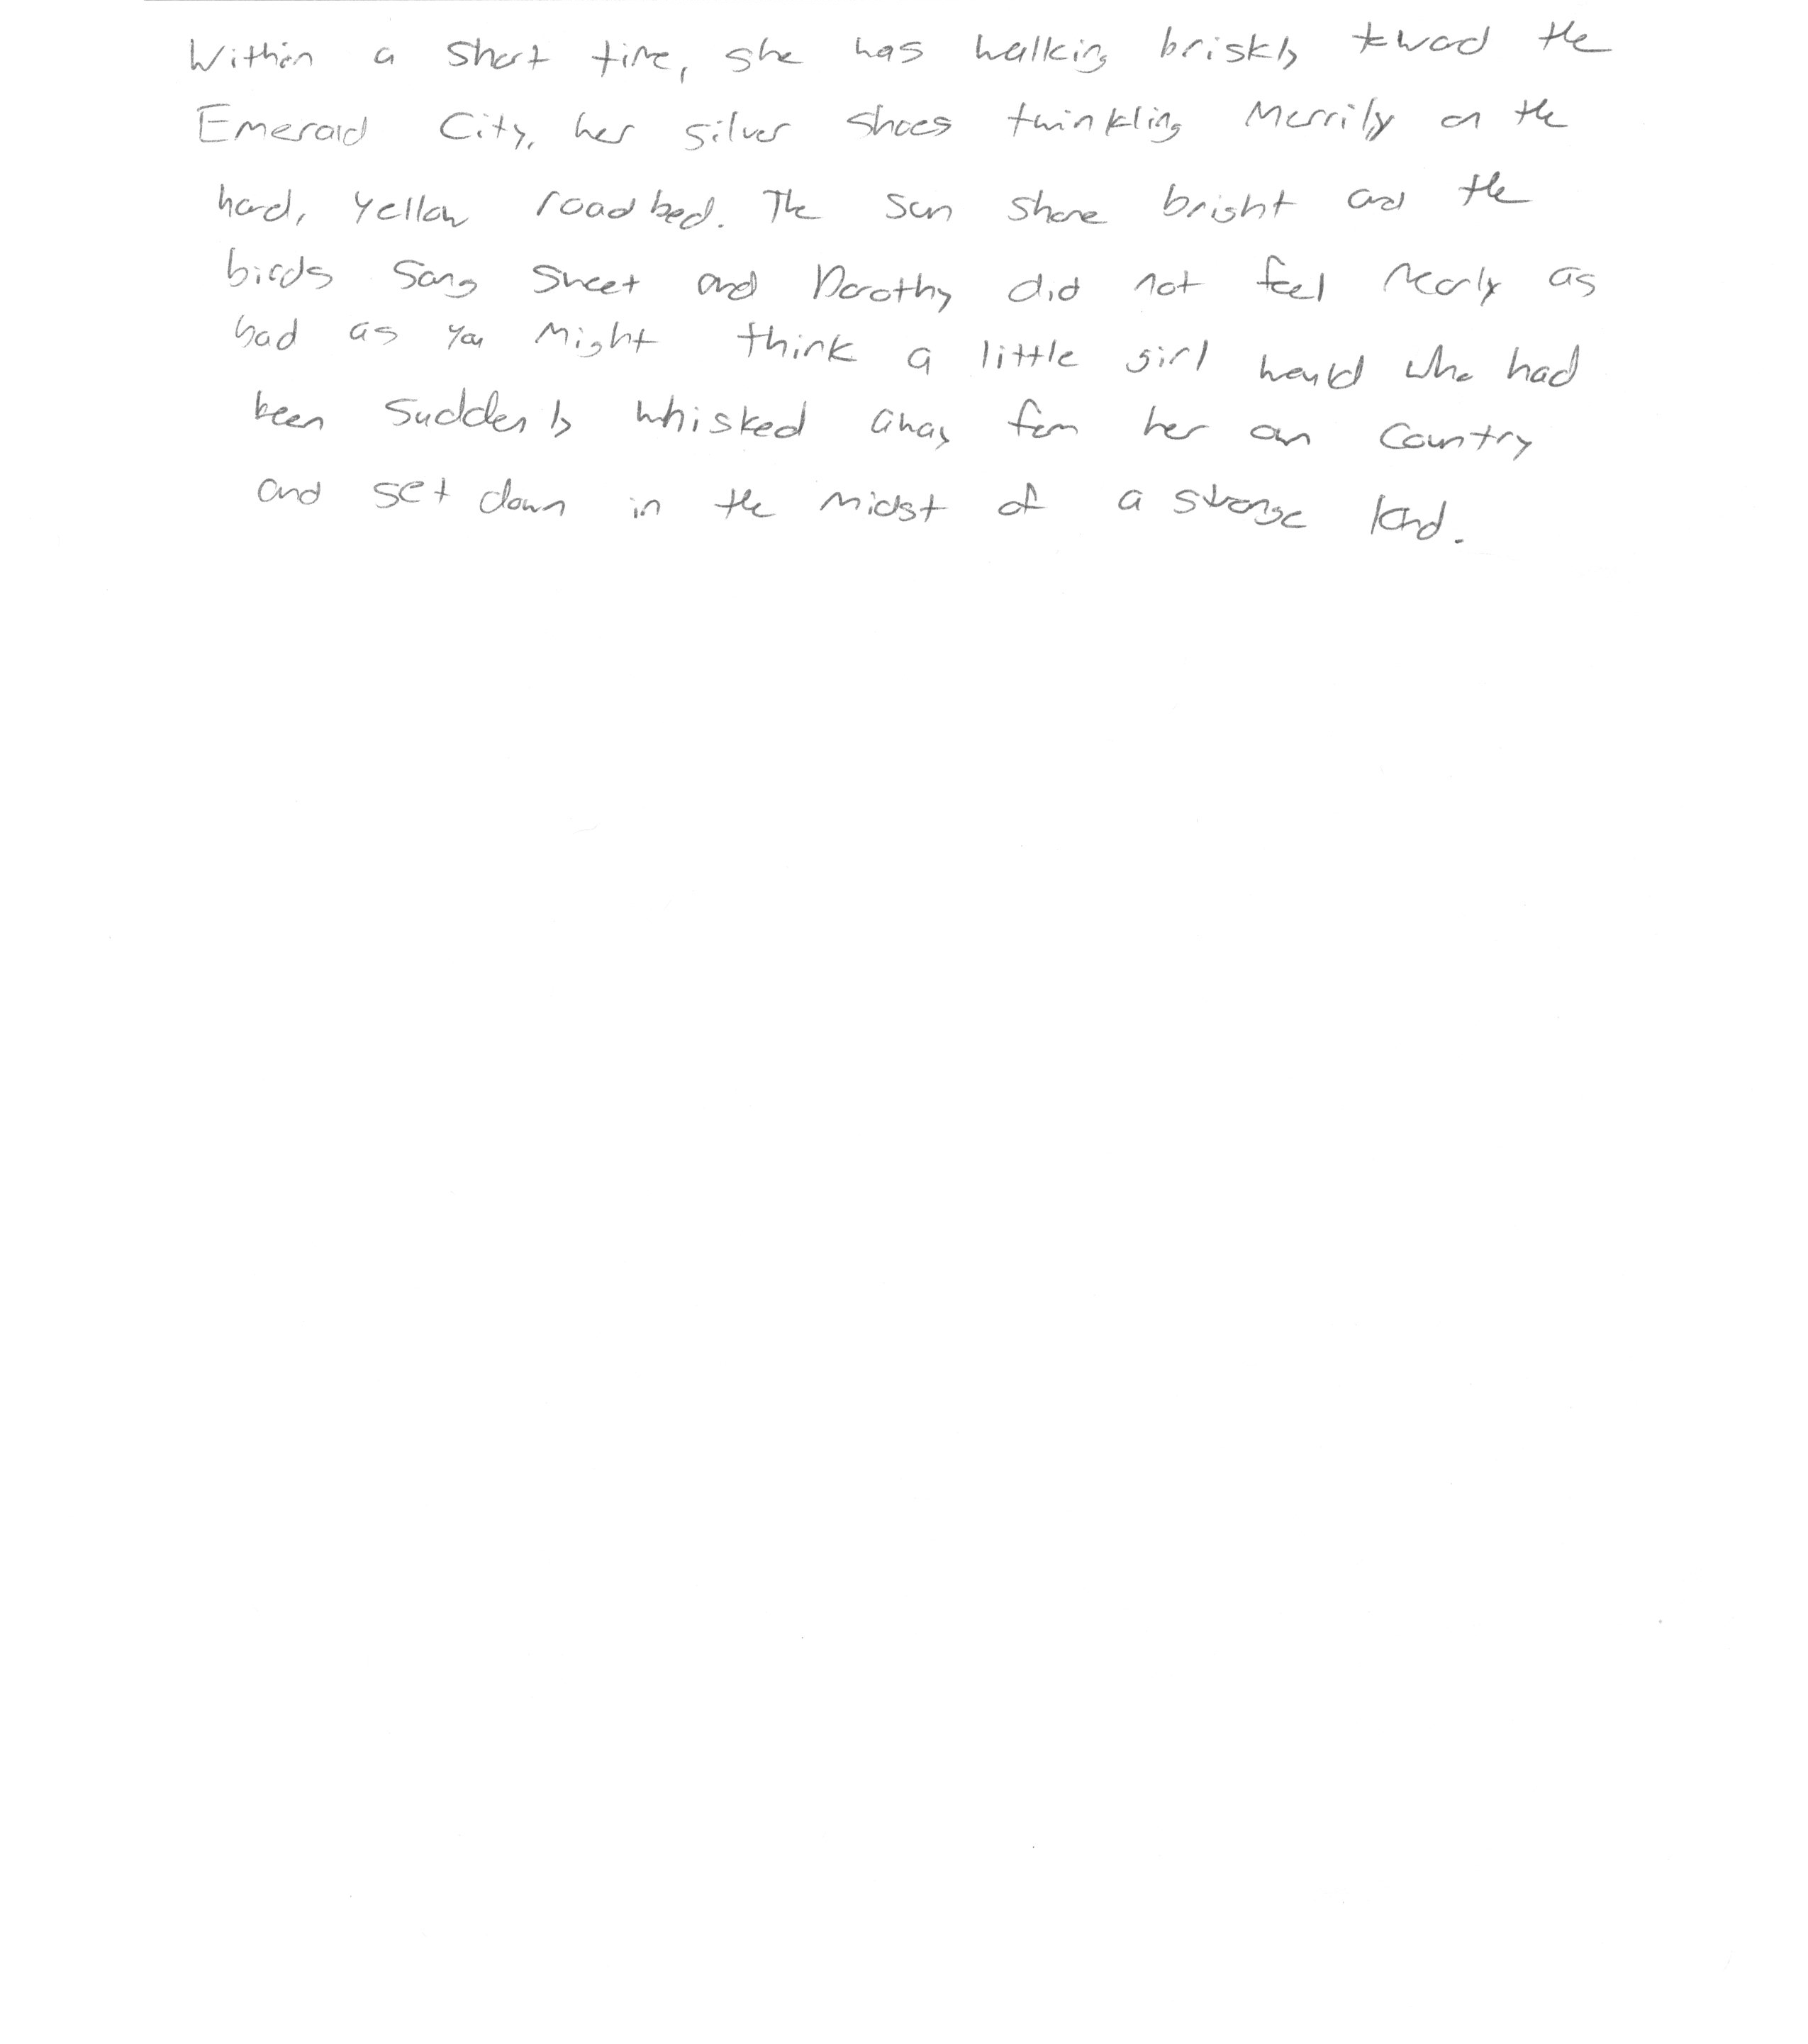 Within a short time, she was walking briskly toward the
Emerald City, her silver shoes twinkling merrily on the
hard, yellow roadbed. The sun shone bright and the
birds sang sweet and Dorothy did not feel nearly as
bad as you might think a little girl would who had
been suddenly whisked away from her own country
and set down in the midst of a strange land.